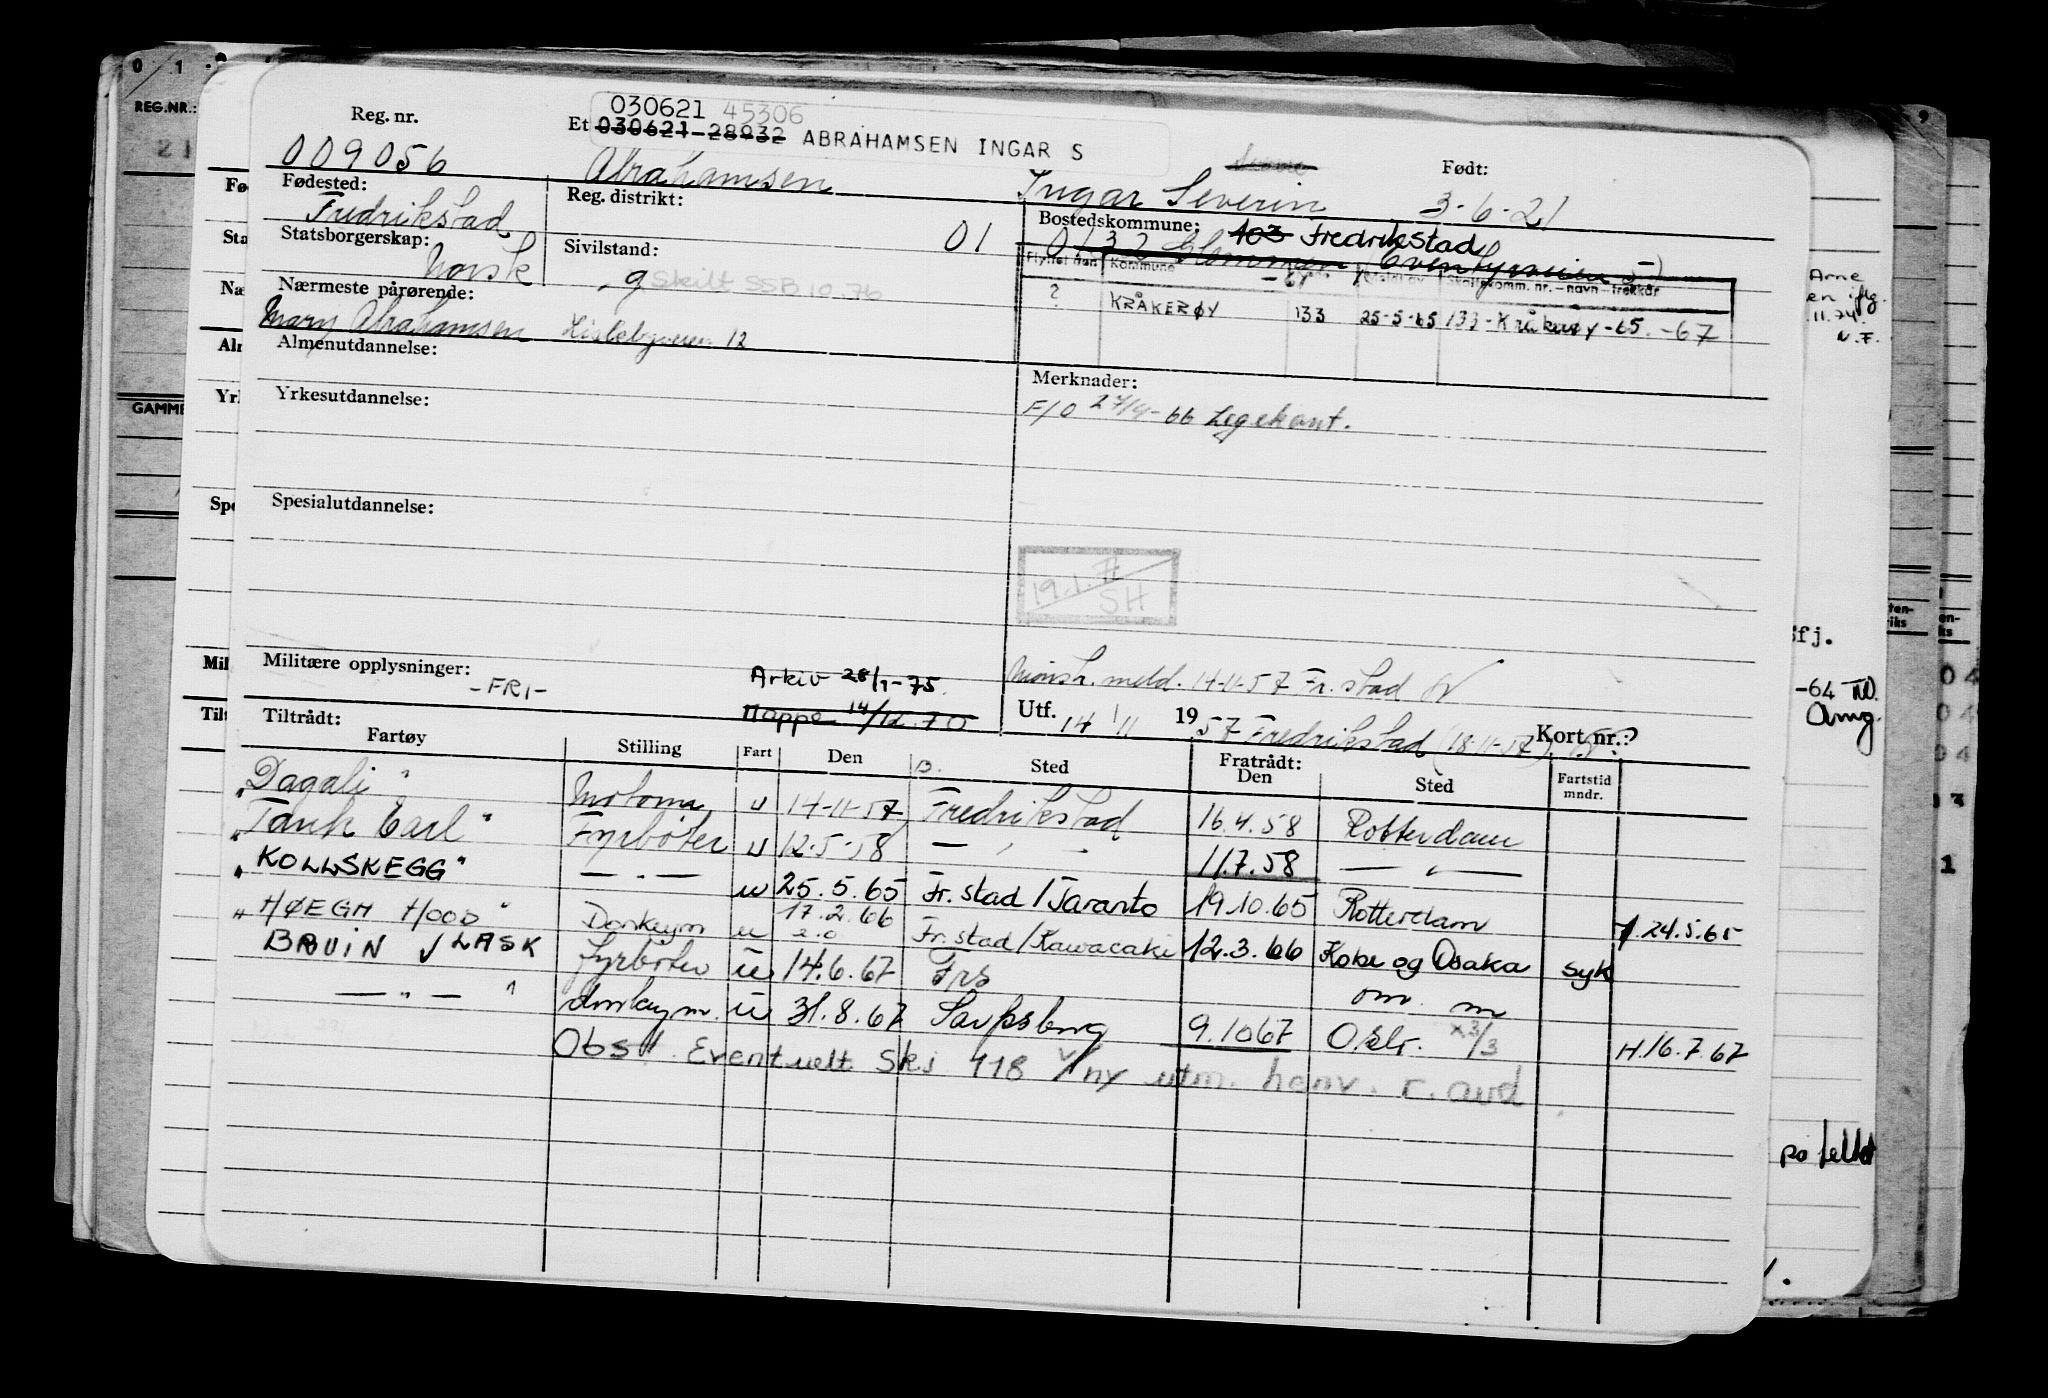 Reg. nr.
030621 45306
Et 030621-28932 ABRAHAMSEN INGAR S
009056 Abrahamsen Ingar Severin Født: 3-6-21
Fødested: Reg. distrikt: Bostedskommune:
Fredrikstad 01 103 Fredrikstad
0132 Glommen
Statsborgerskap: Sivilstand:
Norsk g Skilt SSB 10.76
Flyttet fra Kommune
Nærmeste pårørende:
? KRÅKERØY 133 25-5-65 133-Kråkerøy-65. -67
Mary Abrahamsen 12
Almenutdannelse:
Merknader:
Yrkesutdannelse:
F/O 27/4-66 Legekont.
Spesialutdannelse:
19.1.71
SH
Militære opplysninger: Arkiv 28/1-75.
-FRI-
Mønstr. meld. 14-11-57 Fr. stad
Tiltrådt: Mappe 14/12.70 Utf. 14/11 1957 Fredrikstad (18-11-57) Kort nr.: ?
Fartøy Stilling Fart Den Sted Fratrådt: Den Sted Fartstid mndr.
"Dagali" Motorm. u 14-11-57 Fredrikstad 16.4.58 Rotterdam
"Tank Carl" Fyrbøter u 12-5-58 — " — 11.7.58 — " —
"KOLLSKEGG" — " — u 25.5.65 Fr. stad / Taranto 19.10.65 Rotterdam 24.5.65
"HØEGH HOOD" Donkeym u 17.2.66 Fr. stad / Kawacaki 12.3.66 Kobe og Osaka syk
BRUIN VLASK fyrbøter u 14.6.67 Frs om. m
— " — " donkeym. u 31.8.67 Sarpsborg 9.10 67 Oslo. x3/3 H.16.7.67
Obs! Eventuelt Skj 118 v/ny utm. henv. r. avd.